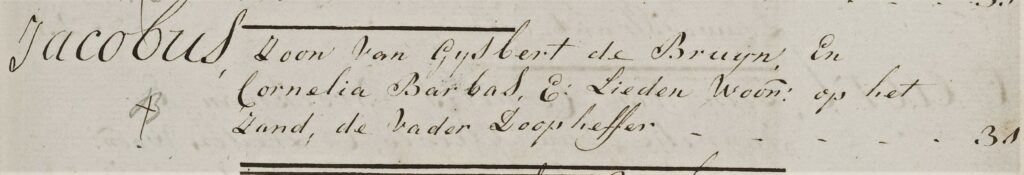 Jacobus, Zoon Van Gysbert de Bruyn, En
Cornelia Barbas, E: Lieden Woon: op het
Zand, de Vader Doopheffer - - - - - 31